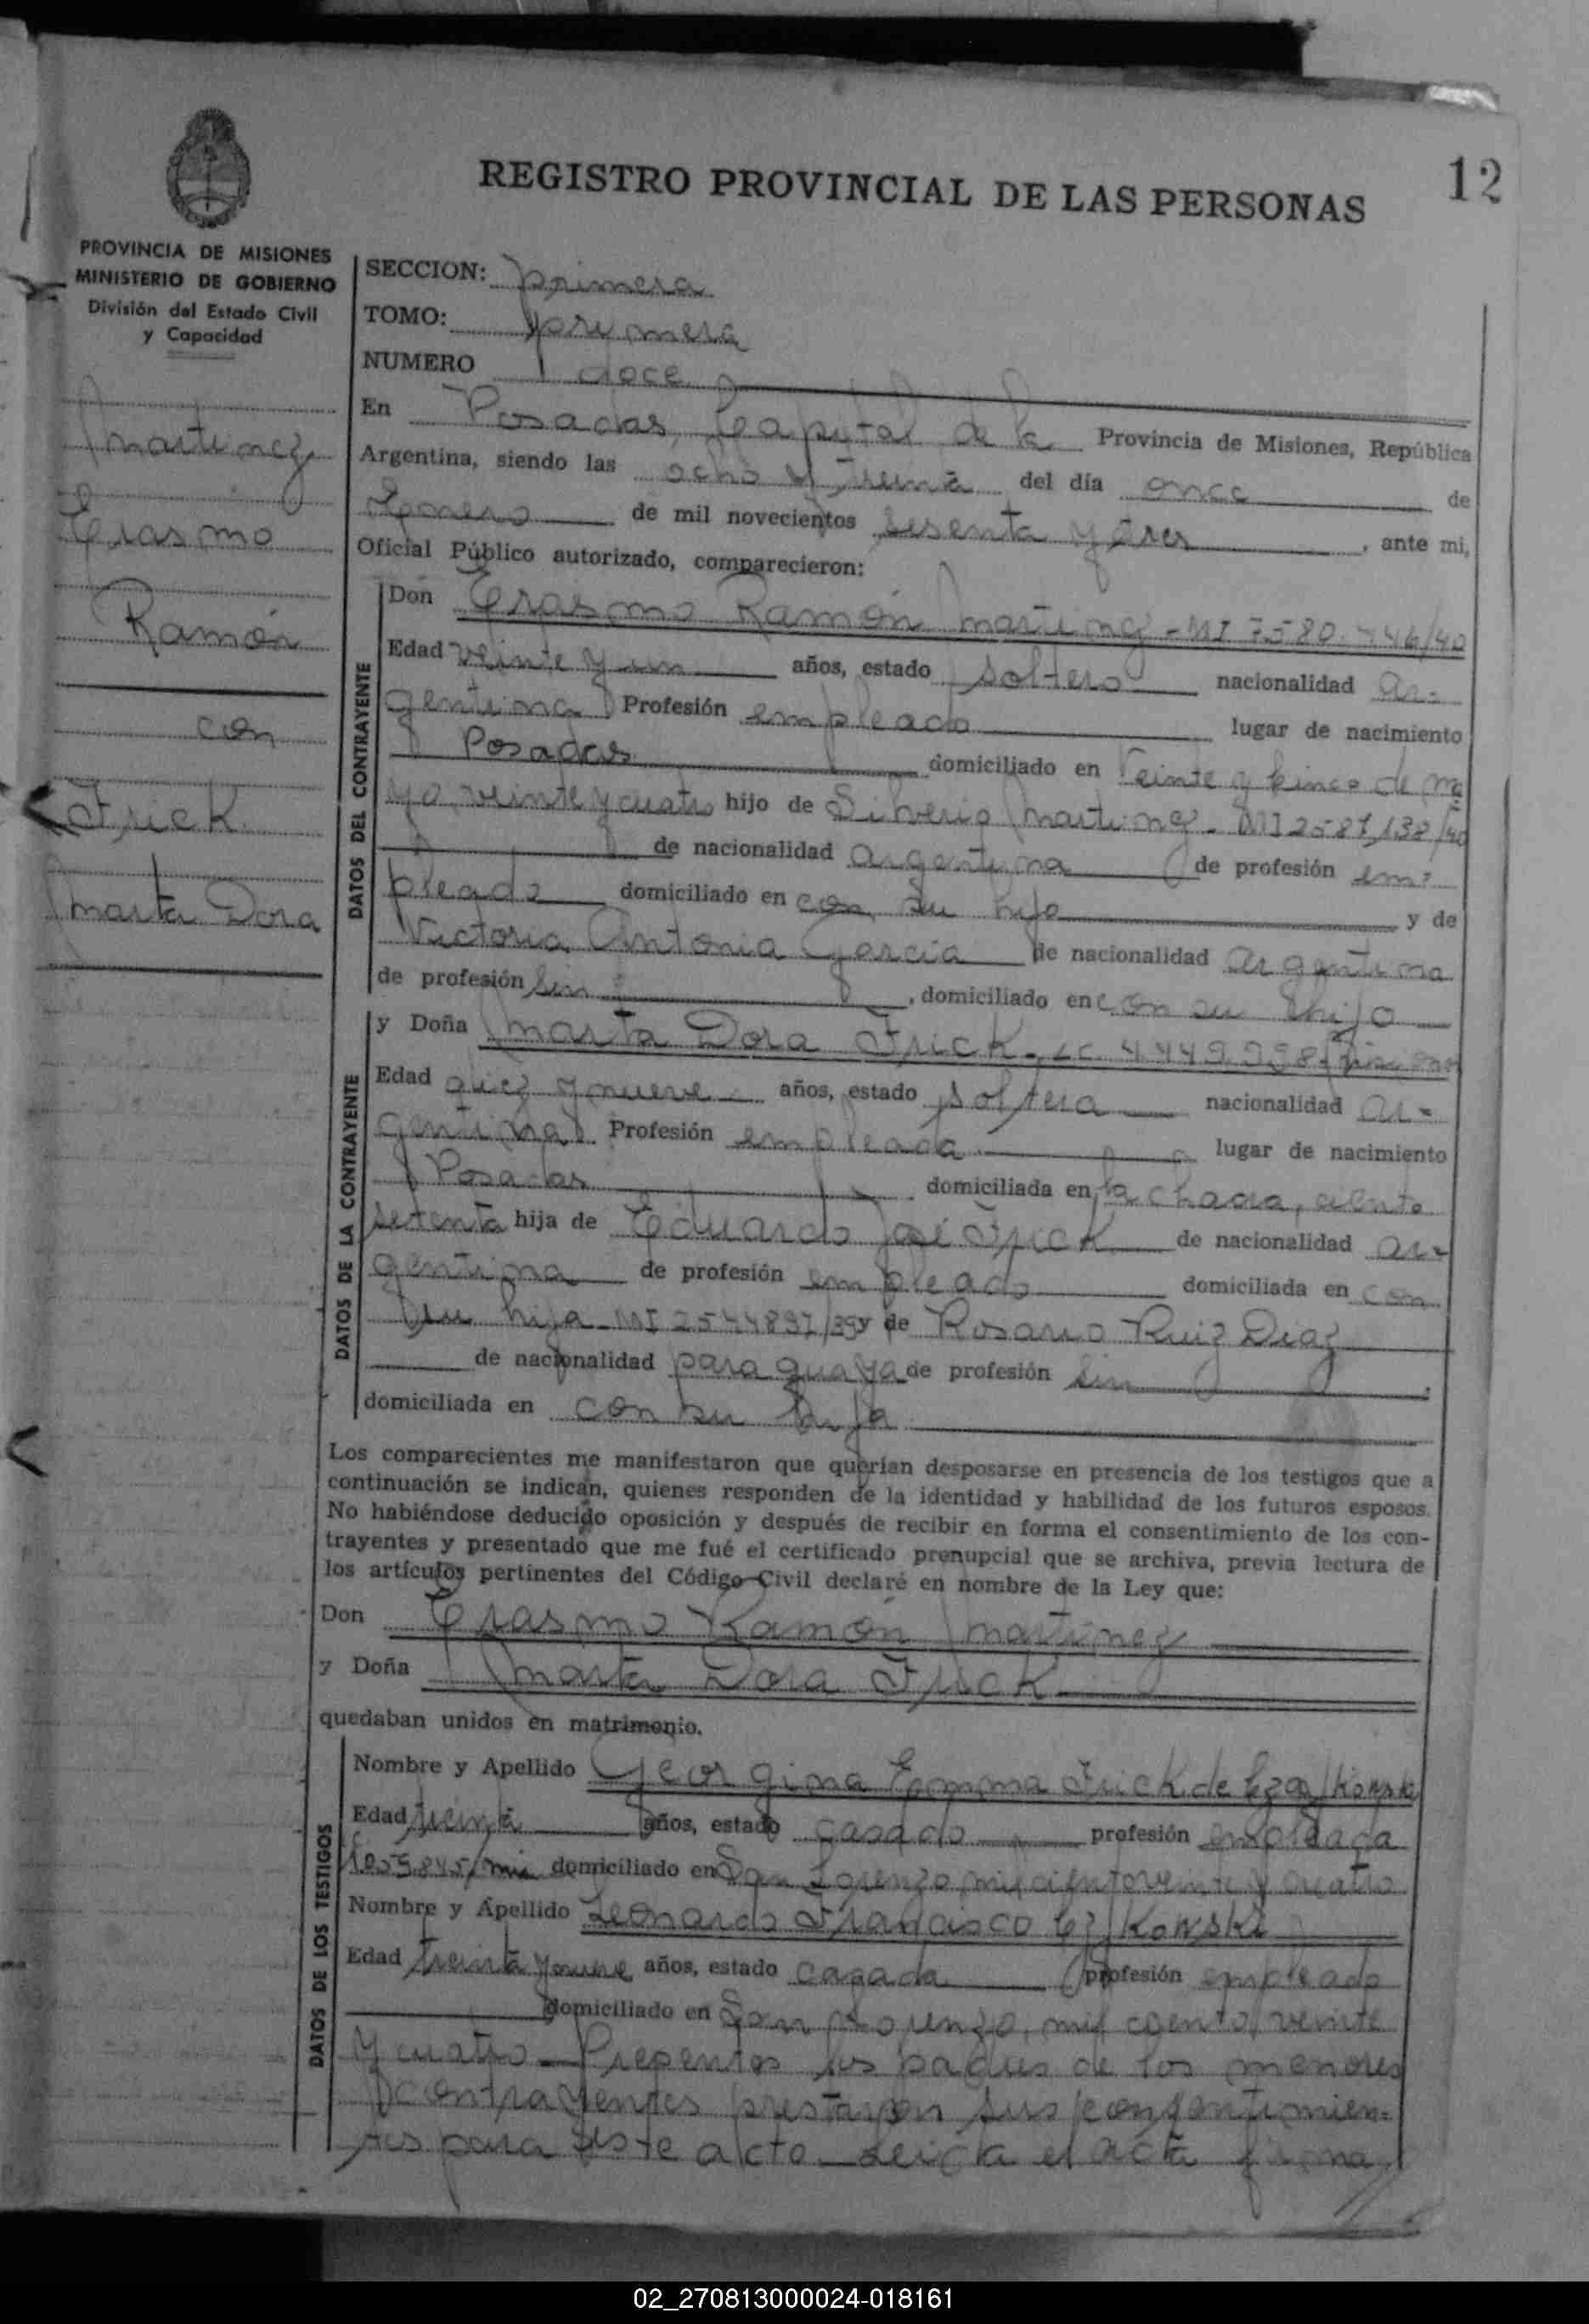 12
REGISTRO PROVINCIAL DE LAS PERSONAS
PROVINCIA DE MISIONES
MINISTERIO DE GOBIERNO
División del Estado Civil
y Capacidad
Martinez
Erasmo
Ramón
con
Frick
Marta Dora
SECCION: primera
TOMO: primera
NUMERO doce
En Posadas, Capital de la Provincia de Misiones, República
Argentina, siendo las ocho y treinta del día once de
Enero de mil novecientos sesenta y tres, ante mi,
Oficial Público autorizado, comparecieron:
DATOS DEL CONTRAYENTE
Don Erasmo Ramón Martinez - MI 7580.746/40
Edad veinte y un años, estado soltero nacionalidad ar-
gentina Profesión empleado lugar de nacimiento
Posadas domiciliado en Veinte y Cinco de Ma
yo, veinte y cuatro hijo de Silverio Martinez - MI 2587138/40
de nacionalidad argentina de profesión em-
pleado domiciliado en con su hijo y de
Victoria Antonia Garcia de nacionalidad argentina
de profesión sin, domiciliado en con su hijo
DATOS DE LA CONTRAYENTE
y Doña Marta Dora Frick, LC. 4.449.998
Edad diez y nueve años, estado soltera nacionalidad ar-
gentina Profesión empleada lugar de nacimiento
Posadas domiciliada en la chacra, ciento
setenta hija de Eduardo José Frick de nacionalidad ar-
gentina de profesión empleado domiciliada en con
su hija - MI 2544897/39 y de Rosario Ruiz Diaz
de nacionalidad paraguaya de profesión sin
domiciliada en con su hija
Los comparecientes me manifestaron que querían desposarse en presencia de los testigos que a
continuación se indican, quienes responden de la identidad y habilidad de los futuros esposos.
No habiéndose deducido oposición y después de recibir en forma el consentimiento de los con-
trayentes y presentado que me fué el certificado prenupcial que se archiva, previa lectura de
los artículos pertinentes del Código Civil declaré en nombre de la Ley que:
Don Erasmo Ramón Martinez
y Doña Marta Dora Frick
quedaban unidos en matrimonio.
DATOS DE LOS TESTIGOS
Nombre y Apellido Georgina Emma Frick de
Edad treinta años, estado casado profesión empleada
1059845/mis domiciliado en San Lorenzo, mil ciento veinte y cuatro
Nombre y Apellido Leonardo Francisco
Edad treinta y nueve años, estado casada profesión empleado
domiciliado en San Lorenzo, mil ciento veinte
y cuatro - Presentes los padres de los menores
contrayentes prestaron sus consentimien-
tos para este acto - Leida el acta firma
02_270813000024-018161